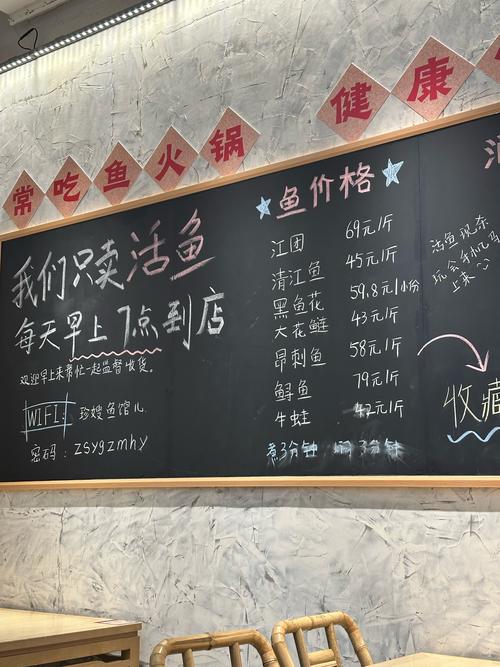 常吃鱼火锅 健康
我们只卖活鱼
每天早上7点到店
欢迎早上来帮忙一起监督收货。
WIFI: 珍嫂鱼馆儿
密码: zsygzmhy
鱼价格
江团 69元/斤
清江鱼 45元/斤
黑鱼花 59.8元/小份
大花鲢 43元/斤
昂刺鱼 58元/斤
鲟鱼 79元/斤
牛蛙 42元/斤
煮3分钟 焖3分钟
活鱼现杀
上来
收藏